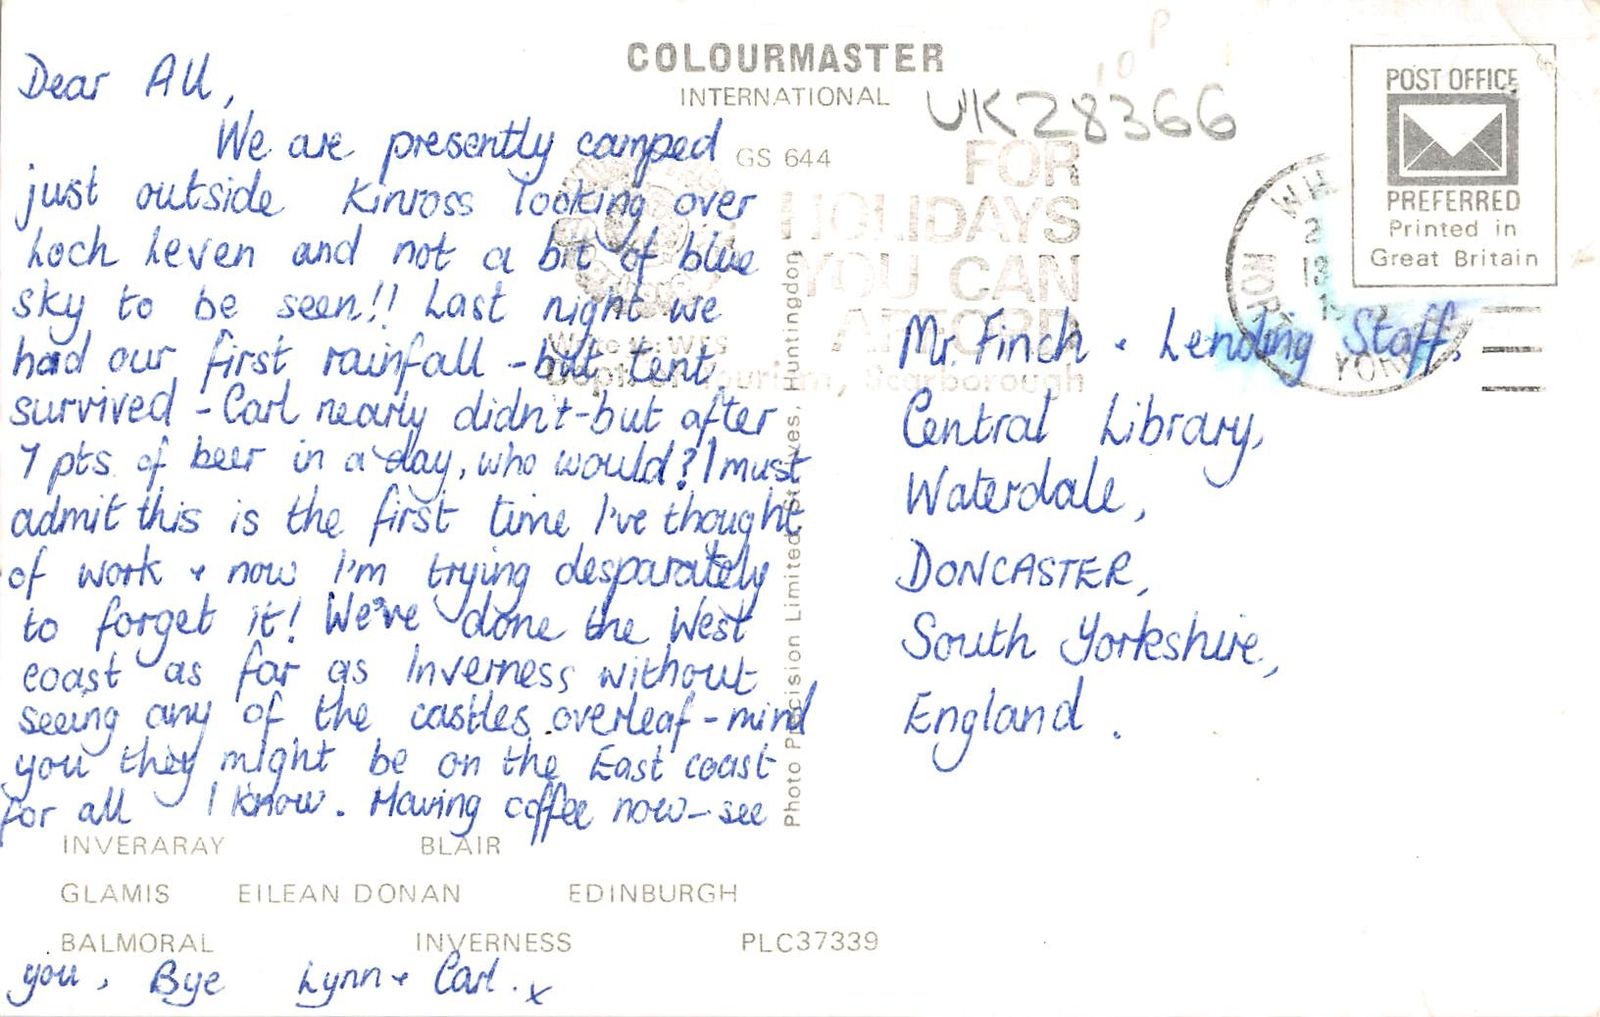 COLOURMASTER
INTERNATIONAL
UK28366
10P
GS 644
POST OFFICE
PREFERRED
Printed in
Great Britain
FOR
HOLIDAYS
YOU CAN
AFFORD
Dept of Tourism, Scarborough
YORK
Dear All,
We are presently camped
just outside Kinross looking over
Loch Leven and not a bit of blue
sky to be seen!! Last night we
had our first rainfall - but tent
survived - Carl nearly didn't - but after
7 pts of beer in a day, who would? I must
admit this is the first time I've thought
of work + now I'm trying desparately
to forget it! We've done the West
coast as far as Inverness without
seeing any of the castles overleaf - mind
you they might be on the East coast
for all I know. Having coffee now - see
you, Bye Lynn + Carl. x
Mr. Finch + Lending Staff,
Central Library,
Waterdale,
DONCASTER,
South Yorkshire,
England.
Photo Precision Limited, St. Ives, Huntingdon
INVERARAY BLAIR
GLAMIS EILEAN DONAN EDINBURGH
BALMORAL INVERNESS PLC37339